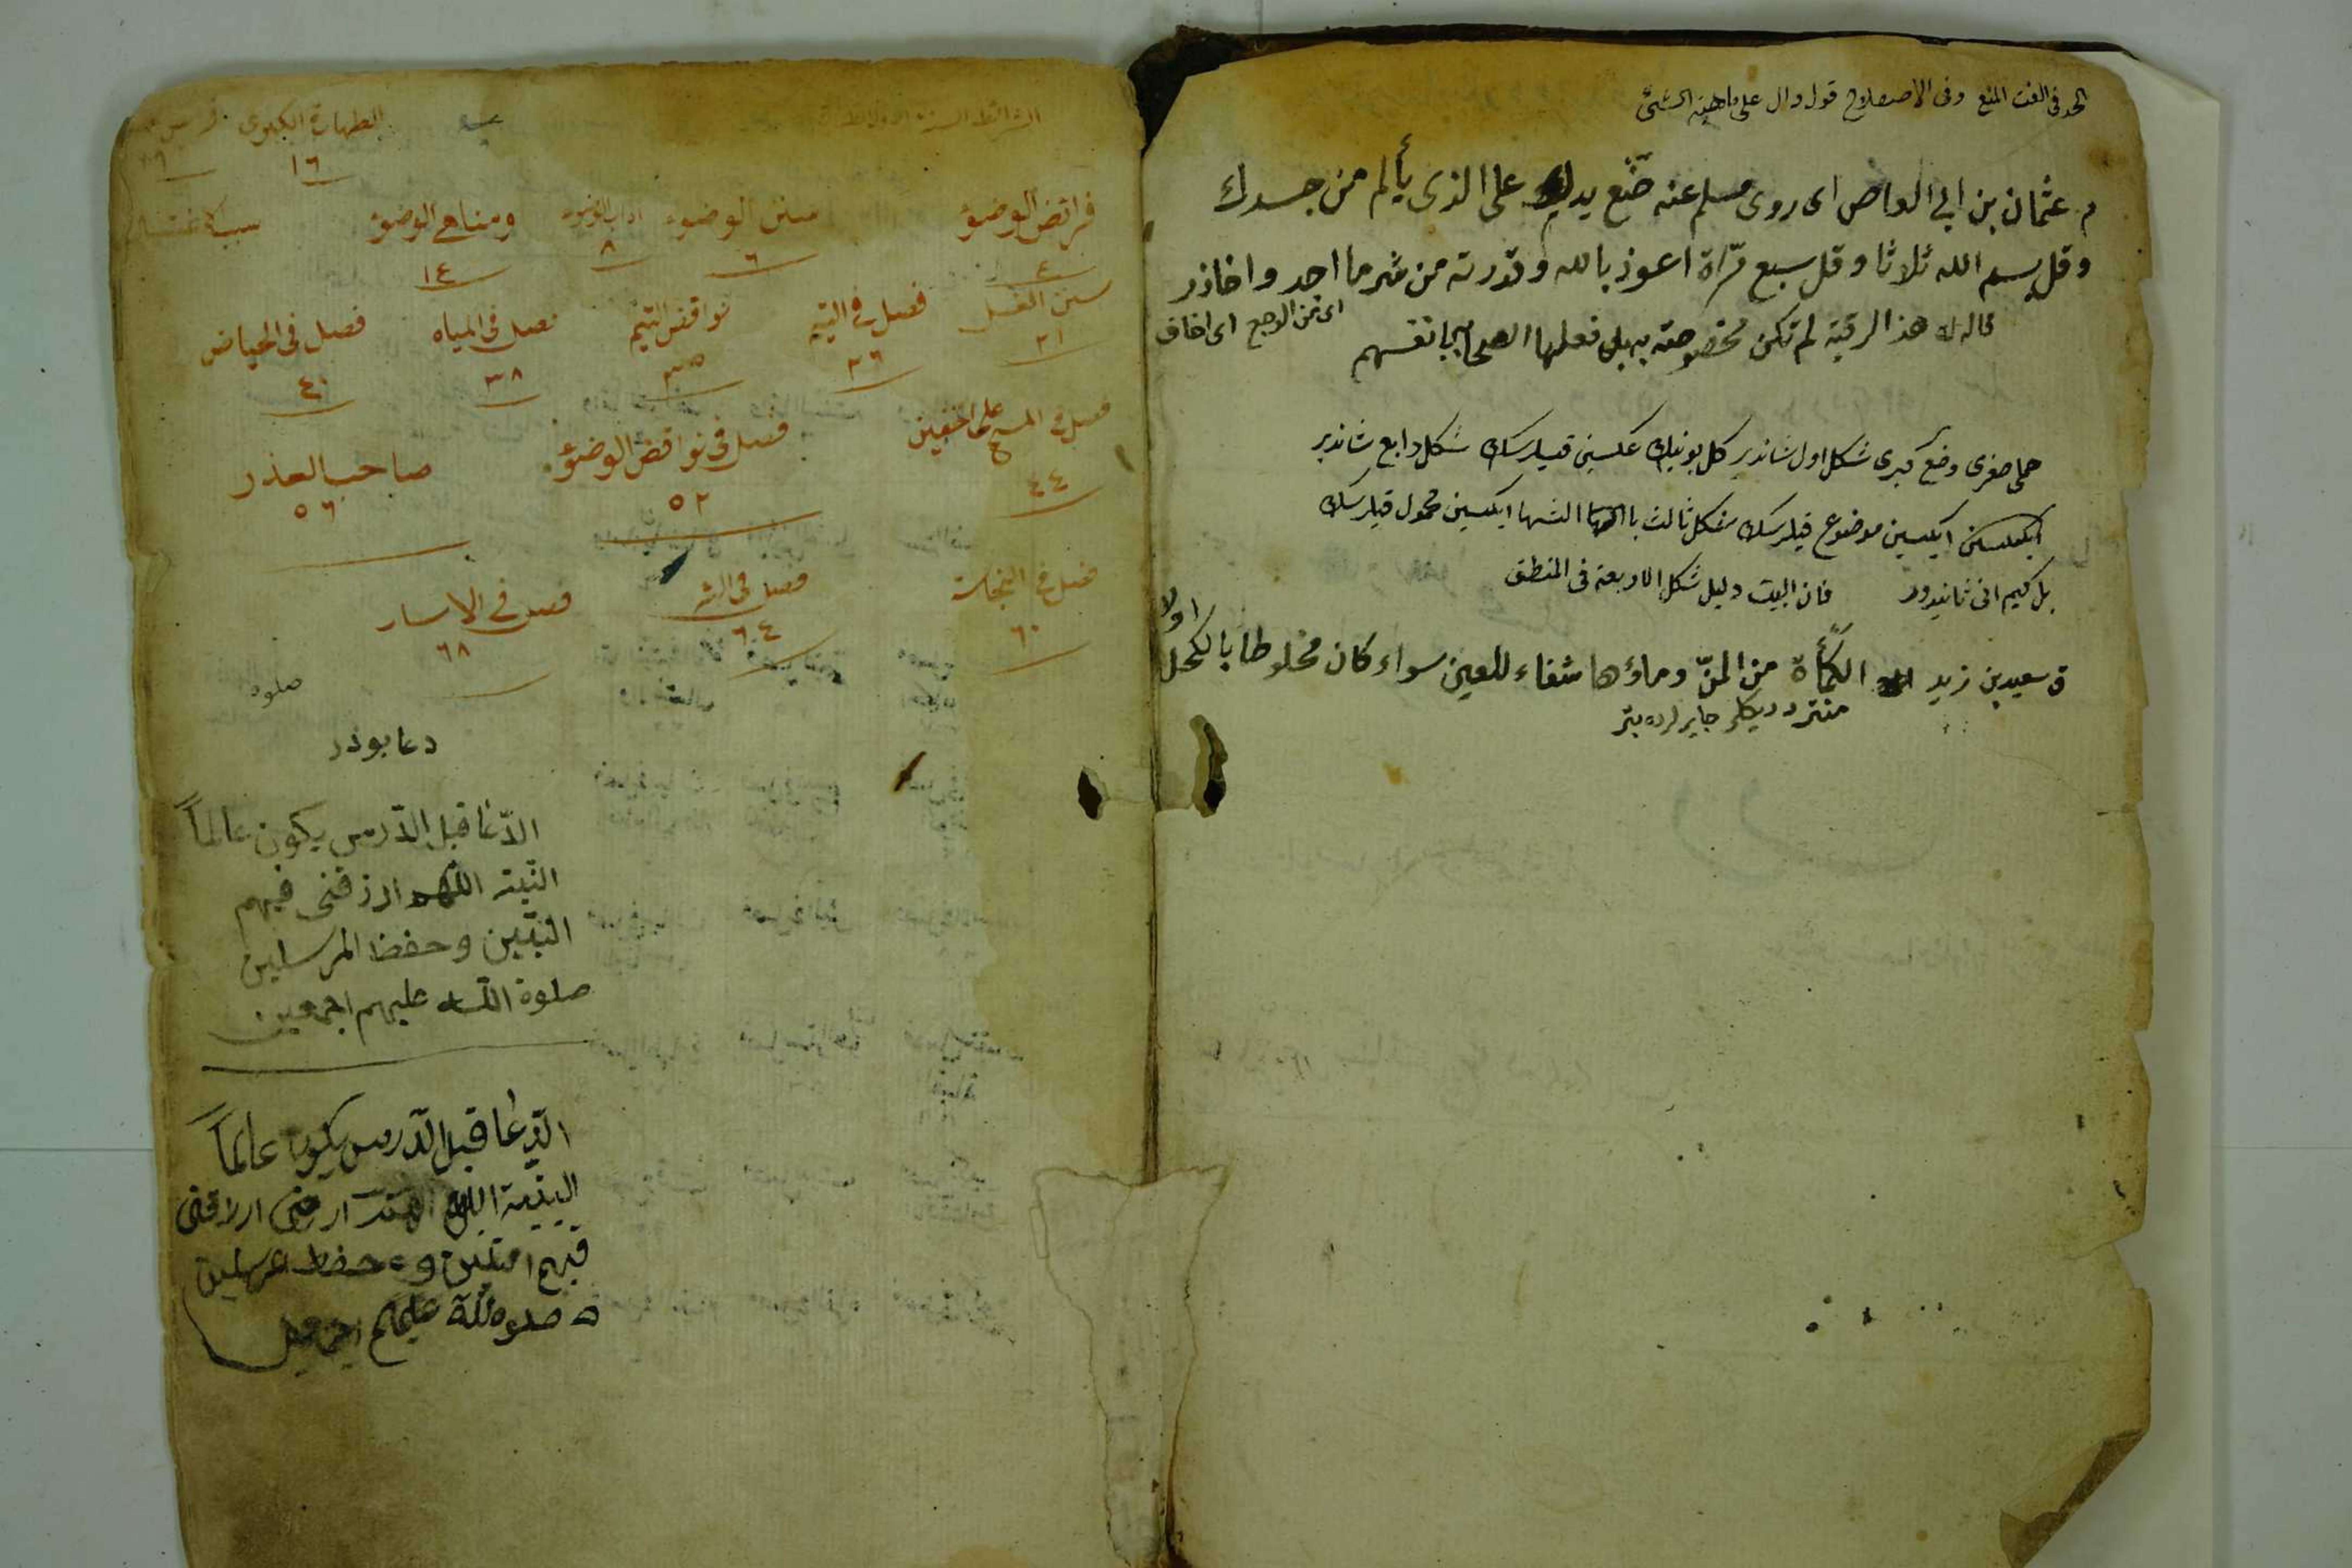 الحد في اللغت المنع وفى الاصطلاح قول دال على ماهية الشئ
م عثمان بن ابي العاص اى روى مسلم عنه ضع يدك على الذى يألم من جسدك
وقل بسم الله ثلاثا وقل سبع مرّاة اعوذ بالله وقدرته من شر ما اجد واحاذر
اى من الوجع اى اخاف
قاله له هذا الرقية لم تكن مخصوصته به بل فعلها الصحابي بانفسهم
حملى صغرى وضع كبرى شكل اول شاندير كل بونيك عكسين قيلرسك شكل رابع شاندير
ايكيسين موضوع قيلرسك شكل ثالث ايكسين محمول قيلرسك
بل كيم انى ثانيدور فان البيت دليل شكل الاربعة فى المنطق
ق سعيد بن زيد الكمأة من المنّ وماؤها شفاء للعين سواء كان مخلوطا بالكحل
اولا
الطهارة الكبرى
١٦
فرائض الوضوء سنن الوضوء اداب الوضوء ومناهى الوضوء
٤ ٦ ٨ ١٤
سنن الغسل فصل في التيمم نواقض التيمم فصل فى المياه فصل فى الحياض
٢١ ٢٦ ٣٥ ٣٨ ٤٠
فصل في المسح على الخفين فصل فى نواقض الوضوء صاحب العذر
٤٤ ٥٢ ٥٦
فصل في النجاسة فصل في البئر فصل في الاسار
٦٠ ٦٤ ٦٨
صلوة
دعا بودر
الدّعا قبل الدّرس يكون عالماً
النّية اللهم ارزقنى فهم
النبّين وحفظ المرسلين
صلوة الله عليهم اجمعين
الدّعا قبل الدّرس يكون عالماً
وحفظ
صلوة الله عليهم اجمعين